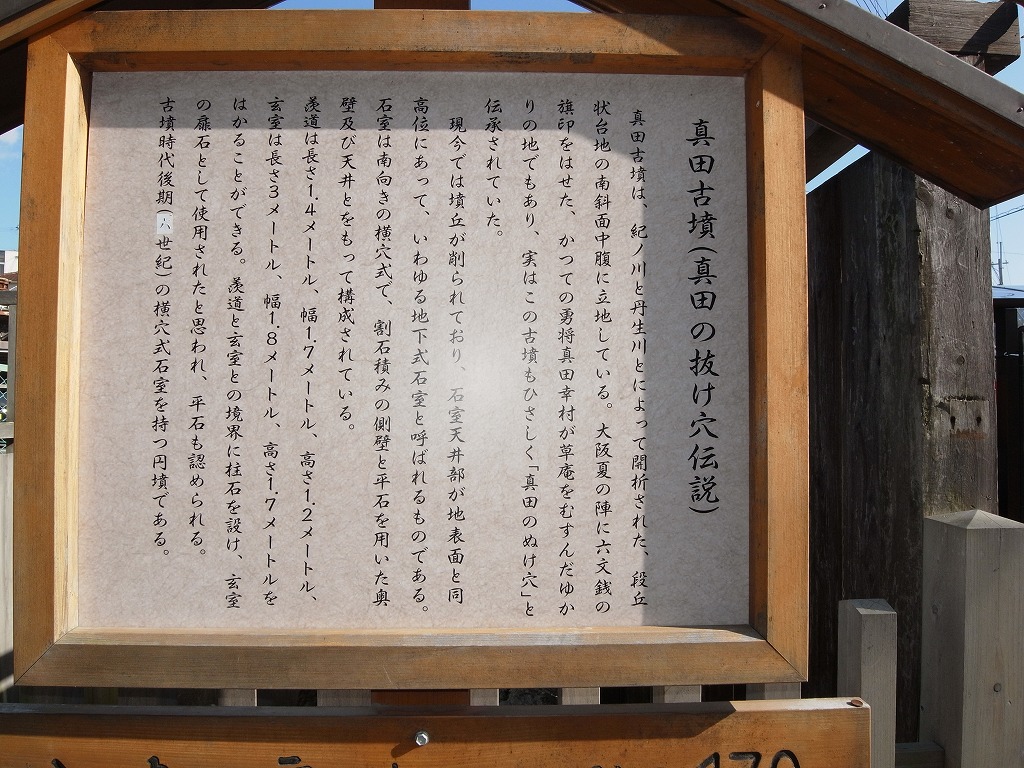 真田古墳(真田の抜け穴伝説)
真田古墳は、紀ノ川と丹生川とによって開析された、段丘
状台地の南斜面中腹に立地している。大阪夏の陣に六文銭の
旗印をはせた、かつての勇将真田幸村が草庵をむすんだゆか
りの地でもあり、実はこの古墳もひさしく「真田のぬけ穴」と
伝承されていた。
現今では墳丘が削られており、石室天井部が地表面と同
高位にあって、いわゆる地下式石室と呼ばれるものである。
石室は南向きの横穴式で、割石積みの側壁と平石を用いた奥
壁及び天井とをもって構成されている。
羨道は長さ1.4メートル、幅1.7メートル、高さ1.2メートル、
玄室は長さ3メートル、幅1.8メートル、高さ1.7メートルを
はかることができる。羨道と玄室との境界に柱石を設け、玄室
の扉石として使用されたと思われ、平石も認められる。
古墳時代後期(六世紀)の横穴式石室を持つ円墳である。
170